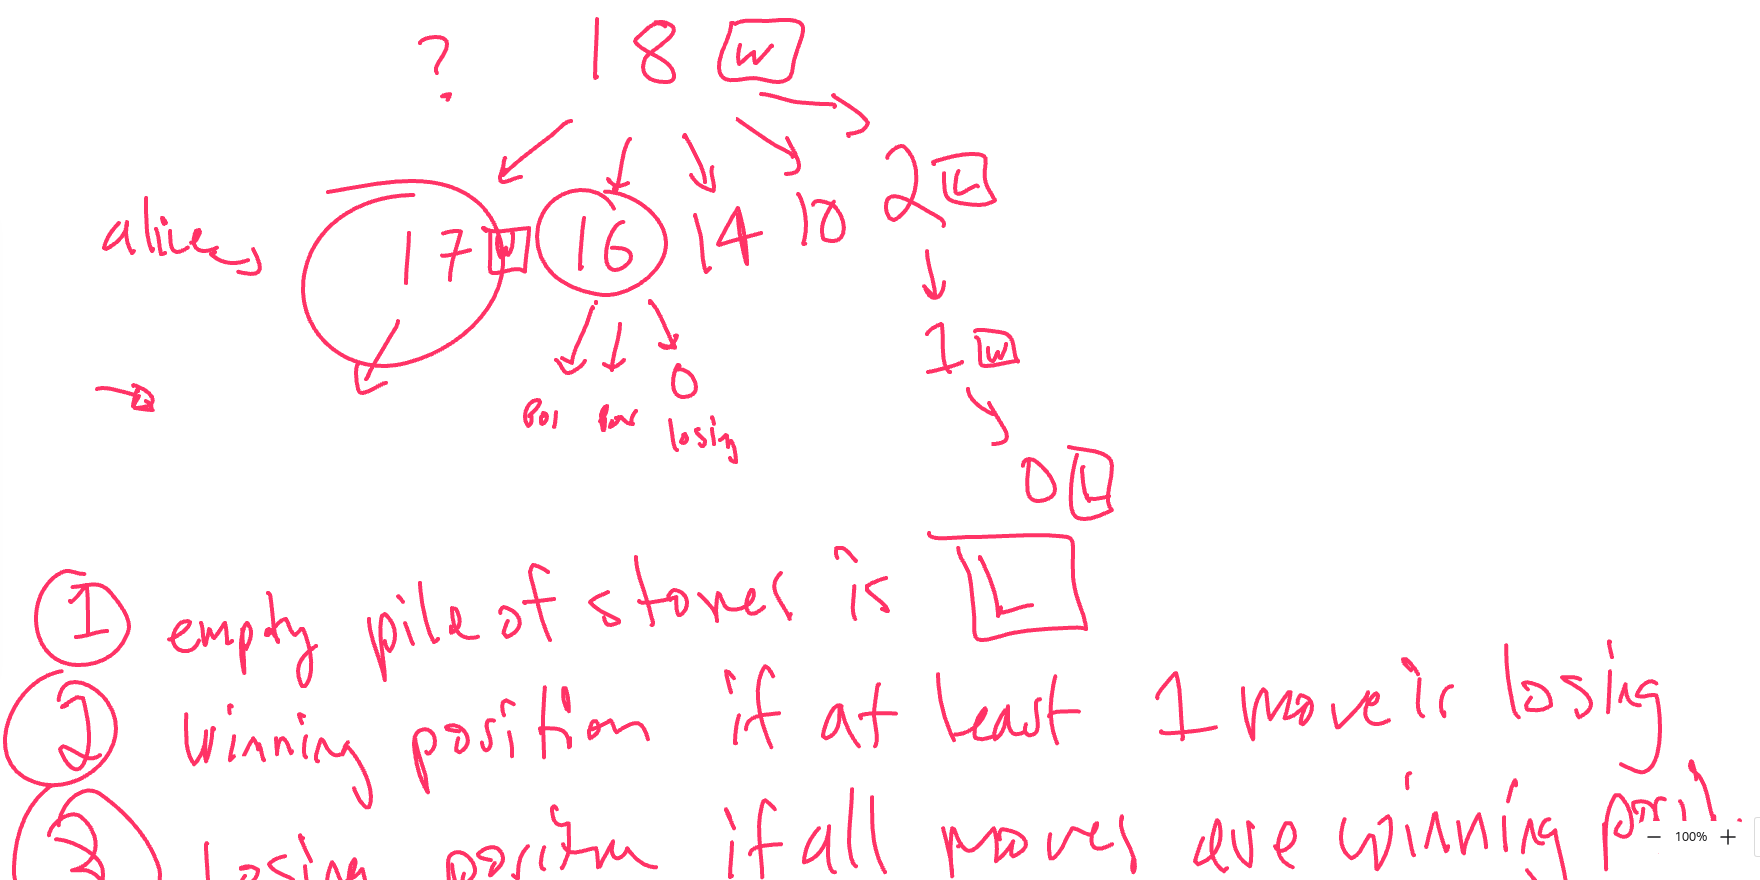 ? 18 W
alice 17 W 16 14 10 2 L
1 W
0
losing
0 L
1 empty pile of stones is L
2 winning position if at least 1 move is losing
3 losing position if all moves are winning
100%